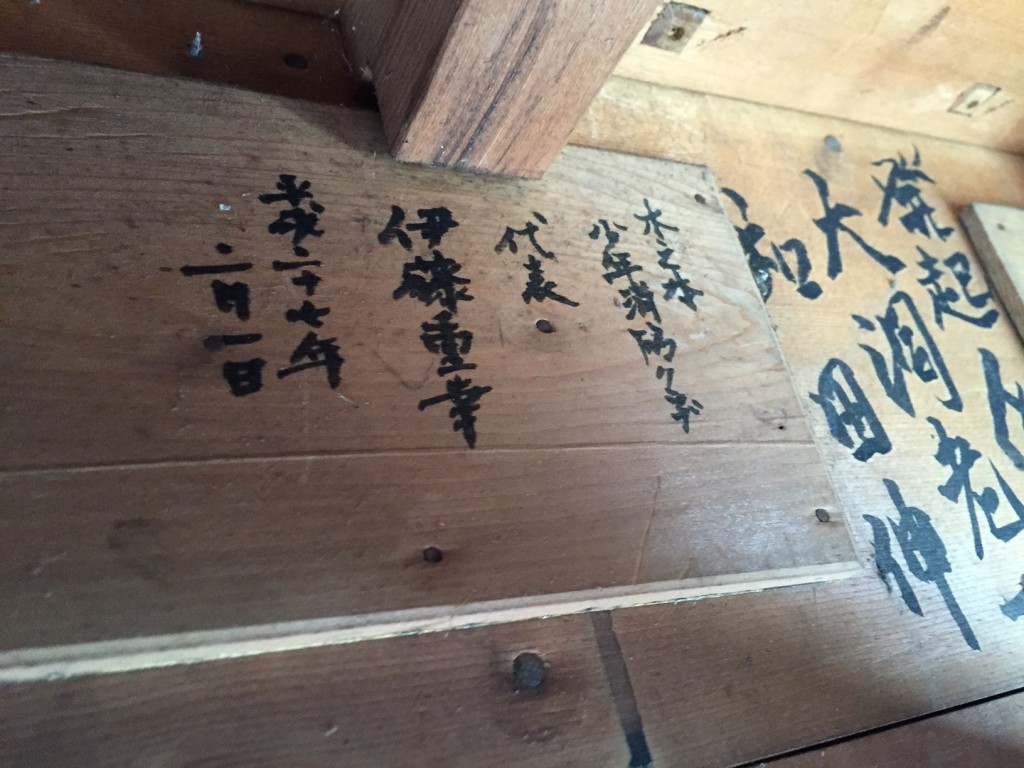 発起
洞老
大
田伸
和
水之本
少年消防クラブ
代表
伊藤重幸
平成二十七年
二月一日